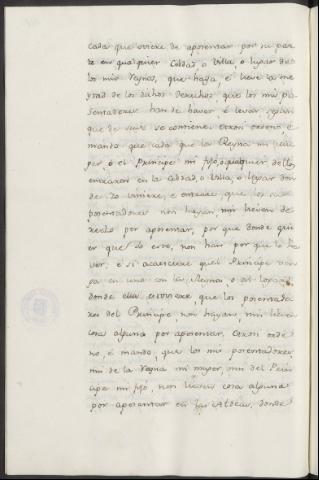 cada que oviere de aposentar por su par
te en qualquier Cibdad o Villa, o lugar de
los mis Regnos, que haya, é lieve la me
ytad de los dichos derechos, que los mis po
sentadores han de haver, é levar segun
que de suso se contiene. Otrosi ordeno, é
mando que cada que la Reyna mi mu
ger, o el Principe mi fijo, o qualquier dellos
entraren en la cibdad, o villa, o lugar don
de Yo viniere, e entrare, que los sus
posentadores non hayan, nin lieven de
recho por aposentar, por que donde quier
er que Yo esto, non han por que lo ha
ver; é si acaesciere quel Principe va
ya en uno con la Reyna, o al logar
donde ella estoviere que los posentado
res del Principe, non hayan, nin lieven
cosa alguna por aposentar. Otrosi orde
no, é mando, que los mis posentadores
nin de la Reyna mi muger, nin del Prin
cipe mi fijo, non lieven cosa alguna
por aposentar en las Aldeas, donde